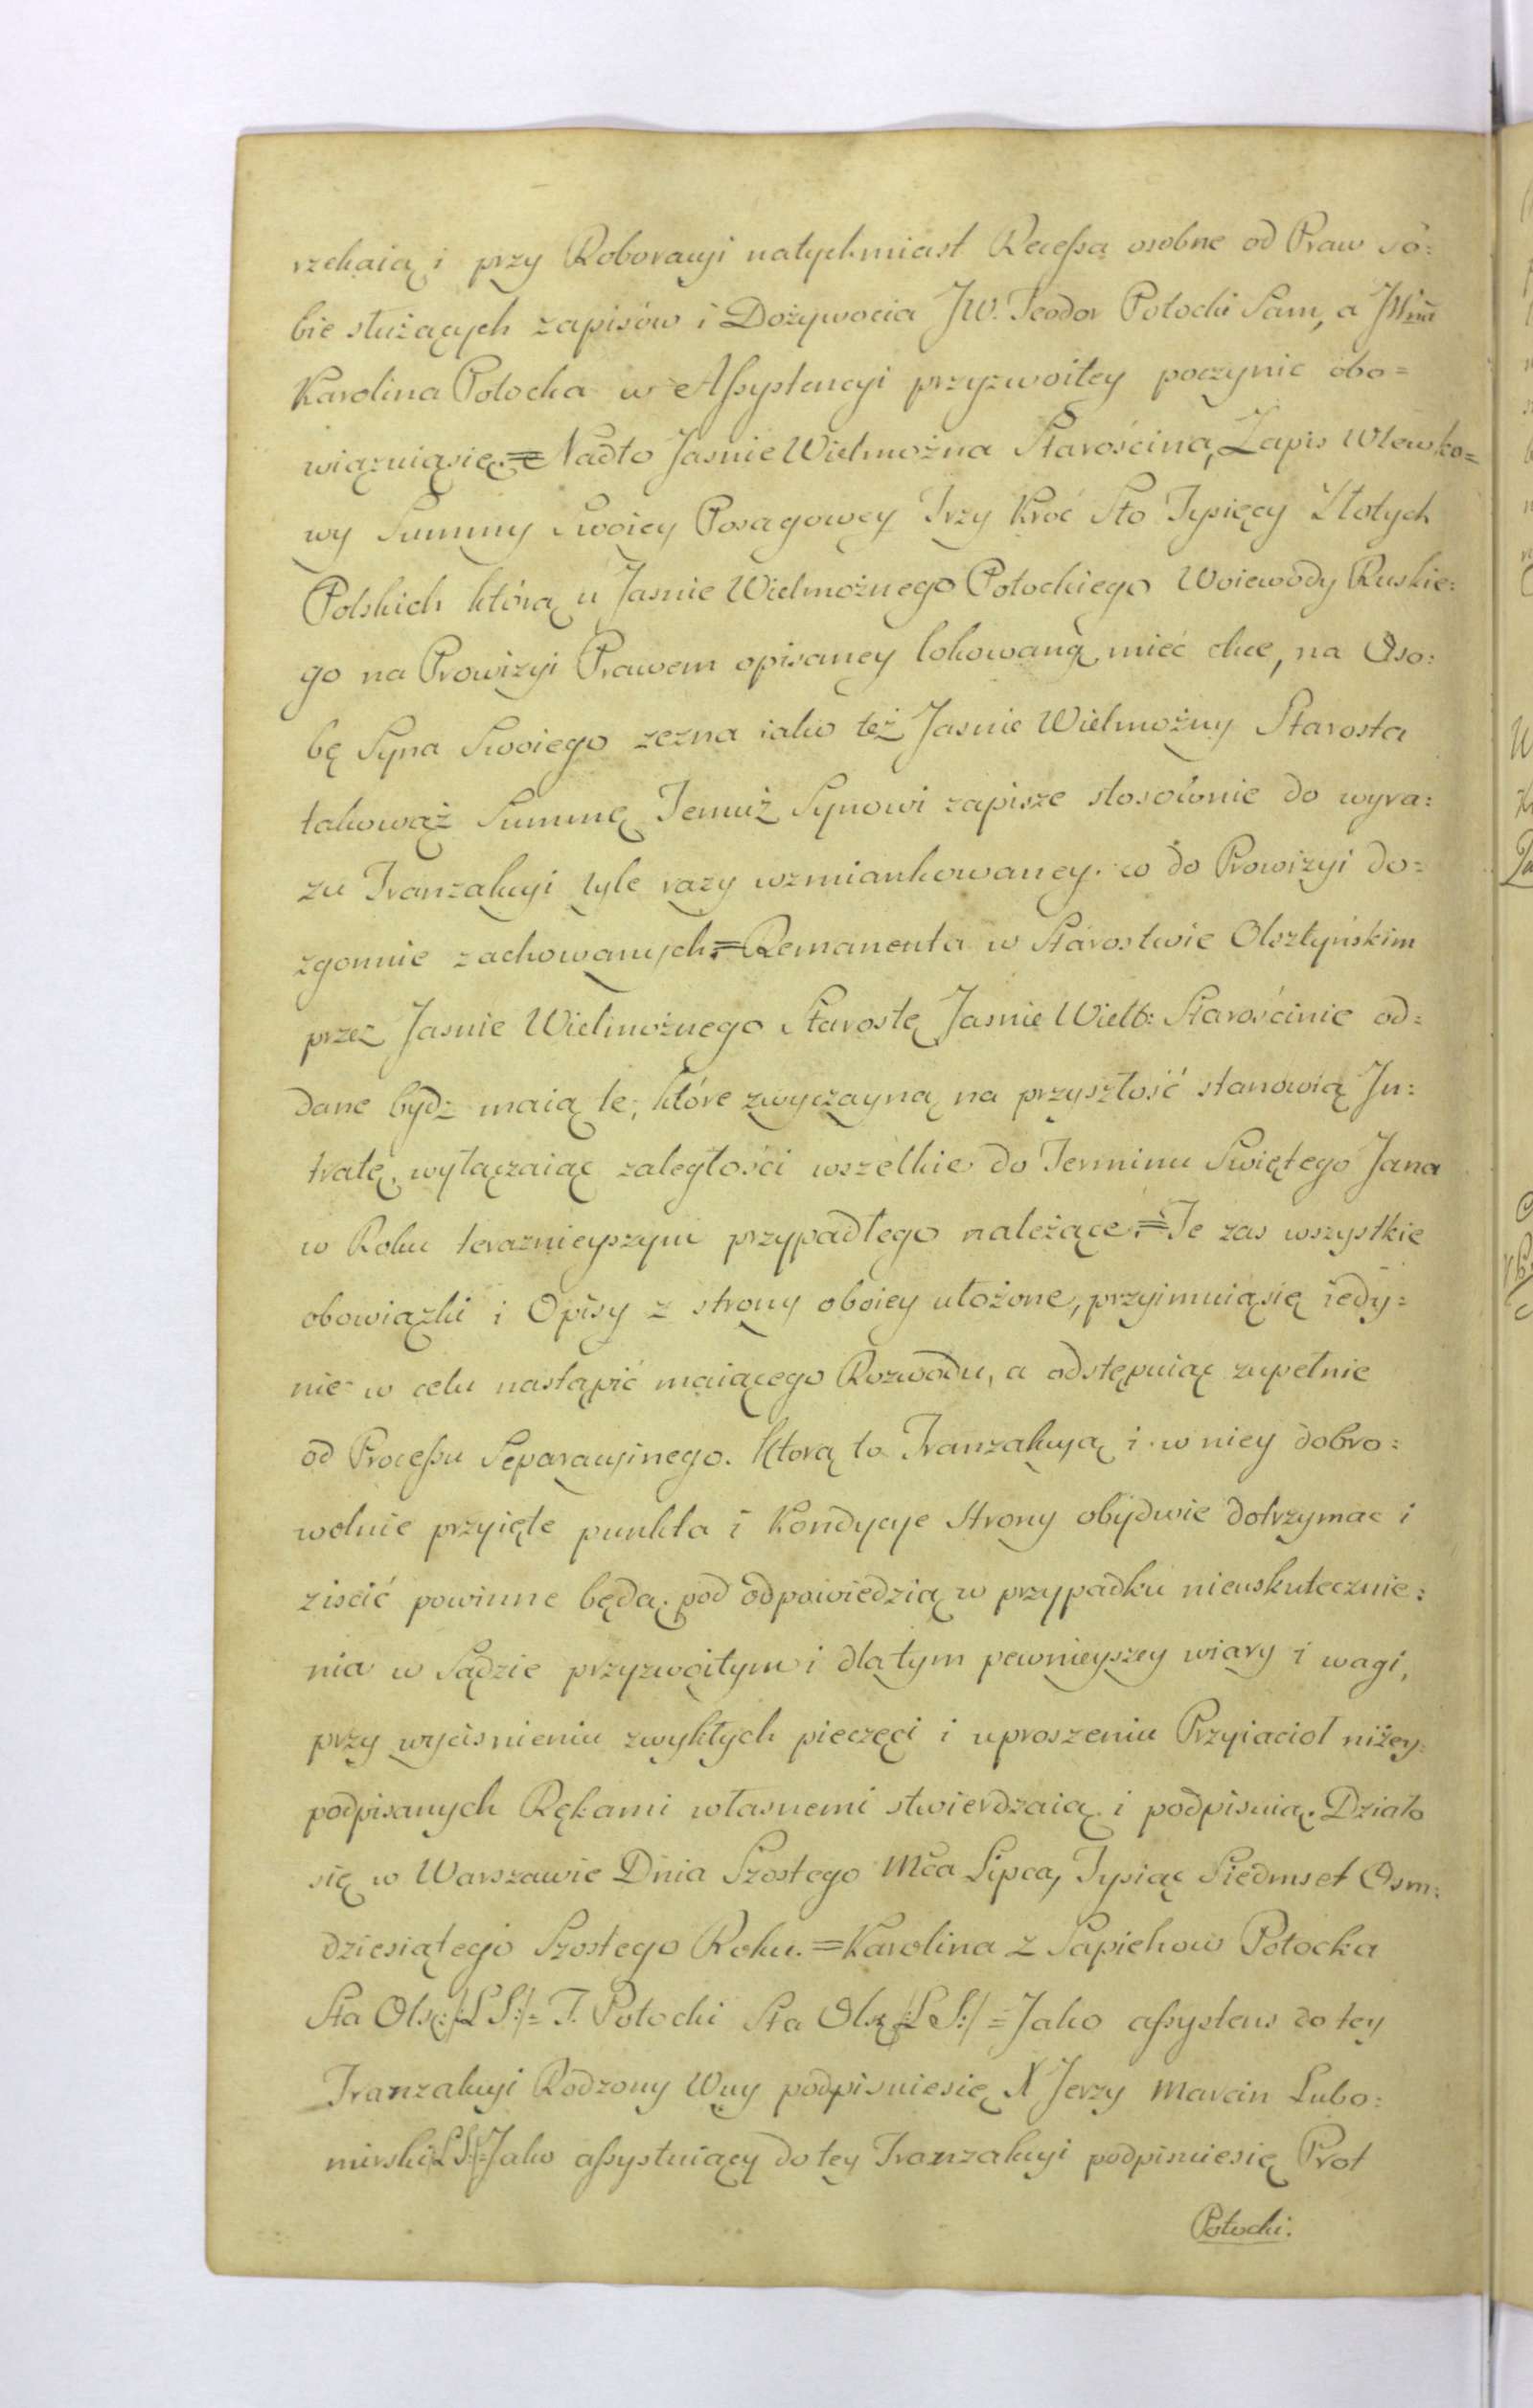 rzekaią i przy Roboracyi natychmiast Recessa osobne od Praw so:
bie służących zapisów i Dożywocia JW. Teodor Potocki Sam, a JWzna
Karolina Potocka w Assystencyi przyzwoitey poczynic obo=
wiązuiąsię.= Nadto Jasnie Wielmożna Starościna, Zapis Wlewko=
wy Summy Swoiey Posagowey Trzy kroć Sto Tysięcy Złotych
Polskich którą u Jasnie Wielmożnego Potockiego Woiewody Ruskie:
go na Prowizyi Prawem opisaney lokowaną mieć chce, na Oso:
bę Syna Swoiego zezna iako też Jasnie Wielmożny Starosta
takowąż Summę Temuż Synowi zapisze stosownie do wyra:
zu Tranzakcyi tyle razy wzmiankowaney. co do Prowizyi do=
zgonnie zachowanych.= Remanenta w Starostwie Olsztyńskim
przez Jasnie Wielmożnego Starostę Jasnie Wielb: Starościnie od=
dane bydź maią te, które zwyczayną na przyszłość stanowią In:
tratę, wyłączaiąc zaległości wszelkie do Terminu Swiętego Jana
w Roku teraznieyszym przypadłego należące.= Te zas wszystkie
obowiązki i Opisy z strony oboiey ułożone, przyimuiąsię iedy=
nie w celu nastąpić maiącego Rozwodu, a odstępuiąc zupełnie
od Processu Separacyinego. Którą to Tranzakcyą i w niey dobro:
wolnie przyięte punkta i Kondycye Strony obydwie dotrzymac i
ziscić powinne będą. pod odpowiedzią w przypadku nieuskutecznie:
nia w Sądzie przyzwoitym i dla tym pewnieyszey wiary i wagi,
przy wycisnieniu zwykłych pieczęci i uproszeniu Przyiacioł niżey:
podpisanych Rękami własnemi stwierdzaią i podpisuią. Działo
się w Warszawie Dnia Szostego Mca Lipca, Tysiąc Siedmset Osm:
dziesiątego Szostego Roku.= Karolina z Sapiehow Potocka
Sta Olsz:/:L S:/= T. Potocki Sta Olsz /:L S:/= Jako assystens do tey
Tranzakcyi Rodzony Wuy podpisuiesię X Jerzy Marcin Lubo:
mirski/:L S:/= Jako assystuiący do tey Tranzakcyi podpisuiesię Prot
Potocki.